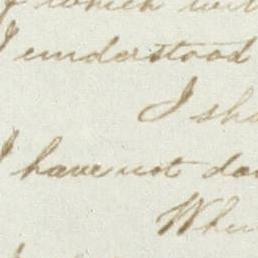 of which wit
I understood
I sha
I have not da
Whe